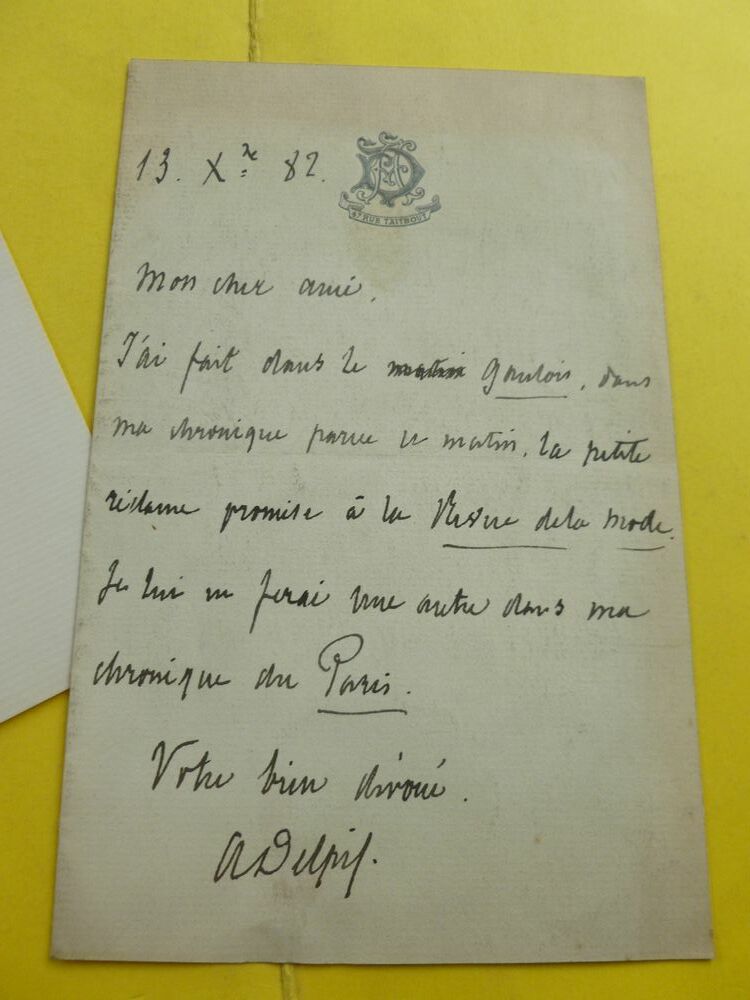 13. Xre 82.
47 RUE TAITBOUT
Mon cher ami,
J'ai fait dans le matin Gaulois, dans
ma chronique parue ce matin, la petite
réclame promise à la Revue de la Mode.
Je lui en ferai une autre dans ma
chronique du Paris.
Votre bien dévoué.
ADelpit.